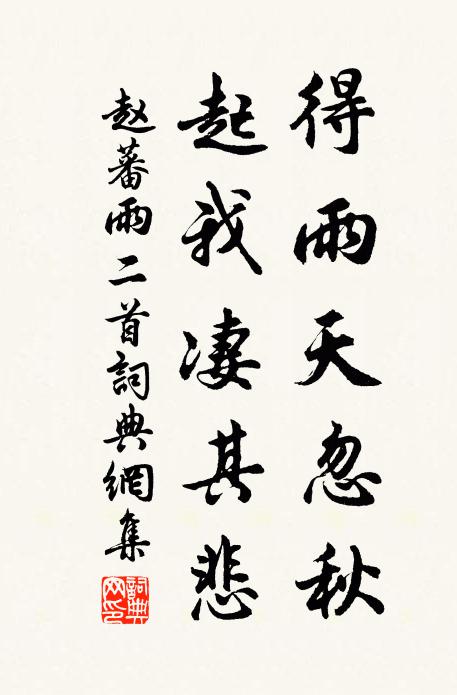 得雨天忽秋
起我凄其悲
赵蕃雨二首詞典網集
詞典網印